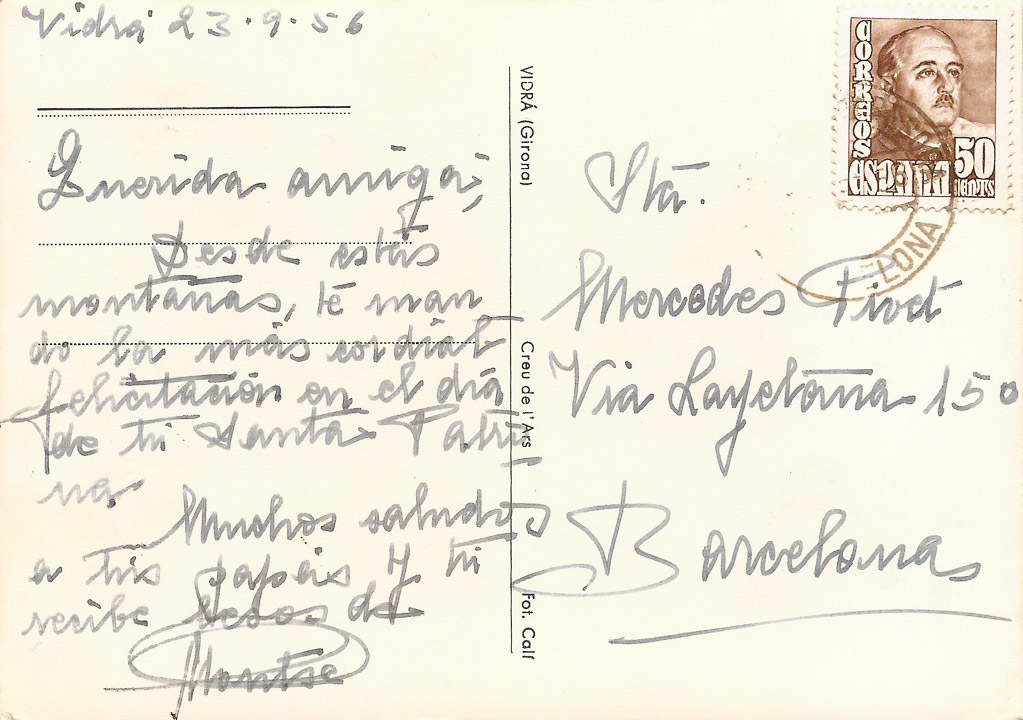 Vidrá 23.9.56
Querida amiga;
Desde estas
montañas, te man
do la más cordial
felicitación en el día
de tu Santa Patro
na.
Muchos saludos
a tus papás y tu
recibe besos de
Montse
VIDRÁ (Girona)
Creu de l'Ars
Fot. Calf
CORREOS
ESPAÑA
50
CENTS
LONA
Sta.
Mercedes Pivet
Via Layetana 150
Barcelona